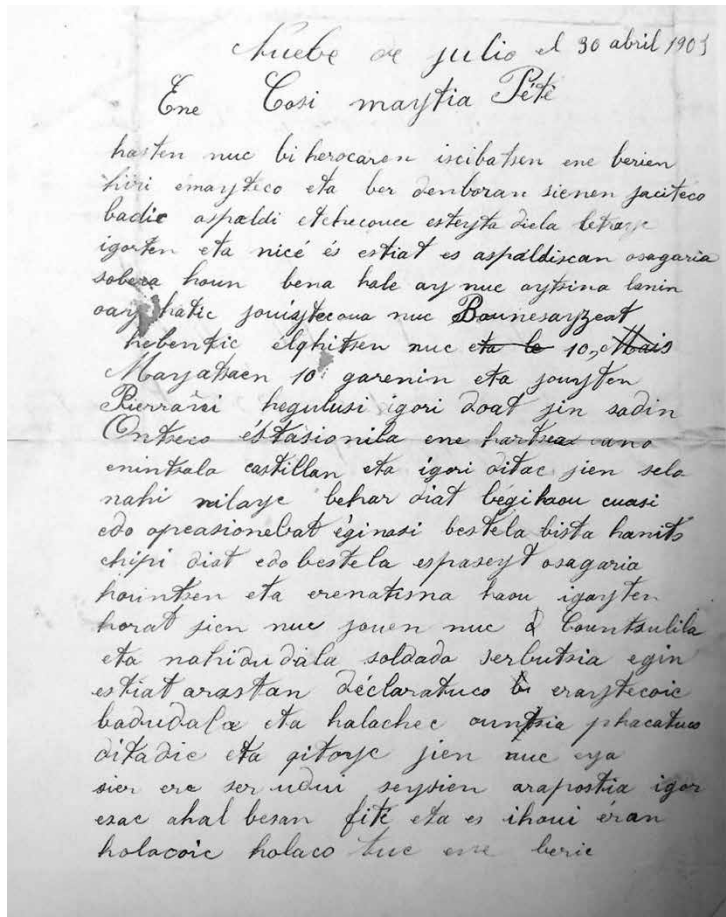 Nuebe de julio el 30 abril 1903
Ene Cosi maytia Pété
hasten nuc bi herocaren iscibatsen ene berien
hiri émayteco eta ber denboran sienen jaciteco
badie aspaldi etchecouec esteyta diela letraye
igorten eta nicé és estiat es aspaldiscan osagaria
sobera houn bena hale ay nuc aytsina lanin
oay hatic jouaytecoua nuc Bounesayzeat
hebentic élghitsen nuc eta le 10, Mais
Mayatsaen 10 garenin eta jouyten
Pierrañi hegulusi igori doat jin sadin
Ontseco éstasionila ene hartseaz cano
enintsala castillan eta igori ditac jien sela
nahi nilaye behar diat bégi haou cuasi
edo opeasionebat éginasi bestela bista hanits
chipi diat edo bestela espaseyt osagaria
hountsen eta erenatisna haou igayten
horat jien nuc jouen nuc Countsulila
eta nahidudala soldado serbutsia egin
estiat arastan déclaratuco eraytecoic
badudala eta halachec ountsia phacatuco
ditadie eta gitorye jien nuc eya
sier ere ser udui seysien arapostia igor
esac ahal besan fite eta es ihoui éran
holacoic holaco tuc ene berie